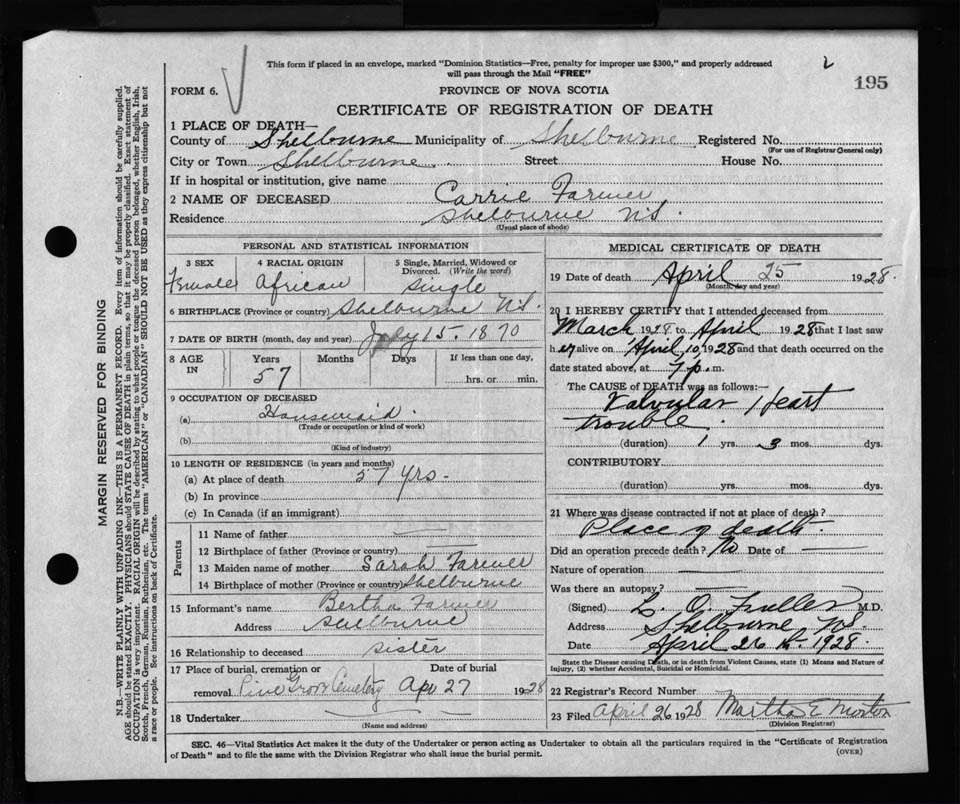 This form if placed in an envelope, marked "Dominion Statistics—Free, penalty for improper use $300," and properly addressed
will pass through the Mail "FREE"
2
195
FORM 6.
PROVINCE OF NOVA SCOTIA
CERTIFICATE OF REGISTRATION OF DEATH
1 PLACE OF DEATH—
County of Shelburne Municipality of Shelburne Registered No.
(For use of Registrar General only)
City or Town Shelburne Street House No.
If in hospital or institution, give name
2 NAME OF DECEASED Carrie Farmer
Residence Shelburne N.S.
(Usual place of abode)
PERSONAL AND STATISTICAL INFORMATION
3 SEX 4 RACIAL ORIGIN 5 Single, Married, Widowed or
Divorced. (Write the word)
Female African Single
6 BIRTHPLACE (Province or country) Shelburne N.S.
7 DATE OF BIRTH (month, day and year) July 15. 1870
8 AGE IN Years Months Days If less than one day,
57 hrs. or min.
9 OCCUPATION OF DECEASED
(a) Housemaid.
(Trade or occupation or kind of work)
(b)
(Kind of industry)
10 LENGTH OF RESIDENCE (in years and months)
(a) At place of death 57 yrs-
(b) In province
(c) In Canada (if an immigrant)
Parents
11 Name of father —
12 Birthplace of father (Province or country) —
13 Maiden name of mother Sarah Farmer
14 Birthplace of mother (Province or country) Shelburne
15 Informant's name Bertha Farmer
Address Shelburne
16 Relationship to deceased sister
17 Place of burial, cremation or Date of burial
removal Pine Grove Cemetery Apr 27 1928
18 Undertaker —
(Name and address)
MEDICAL CERTIFICATE OF DEATH
19 Date of death April 25 1928.
(Month, day and year)
20 I HEREBY CERTIFY that I attended deceased from
March 1928 to April 1928 that I last saw
her alive on April 10, 1928 and that death occurred on the
date stated above, at 7 p.m.
The CAUSE of DEATH was as follows:—
Valvular Heart
trouble.
(duration) 1 yrs. 3 mos. dys.
CONTRIBUTORY
(duration) yrs. mos. dys.
21 Where was disease contracted if not at place of death?
Place of death.
Did an operation precede death? No Date of —
Nature of operation —
Was there an autopsy? —
(Signed) L. O. Fuller M.D.
Address Shelburne N.S.
Date April 26th 1928.
State the Disease causing Death, or in death from Violent Causes, state (1) Means and Nature of
Injury, (2) whether Accidental, Suicidal or Homicidal.
22 Registrar's Record Number
23 Filed April 26 1928 Martha E Morton
(Division Registrar)
SEC. 46—Vital Statistics Act makes it the duty of the Undertaker or person acting as Undertaker to obtain all the particulars required in the "Certificate of Registration
of Death" and to file the same with the Division Registrar who shall issue the burial permit.
(OVER)
MARGIN RESERVED FOR BINDING
N.B.—WRITE PLAINLY WITH UNFADING INK—THIS IS A PERMANENT RECORD. Every item of information should be carefully supplied.
AGE should be stated EXACTLY. PHYSICIANS should STATE CAUSE OF DEATH in plain terms, so that it may be properly classified. Exact statement of
OCCUPATION is very important. RACIAL ORIGIN will be described by stating to what people or tongue the deceased person belonged, whether English, Irish,
Scotch, French, German, Russian, Ruthenian, etc. The terms "AMERICAN" or "CANADIAN" SHOULD NOT BE USED as they express citizenship but not
a race or people. See instructions on back of Certificate.